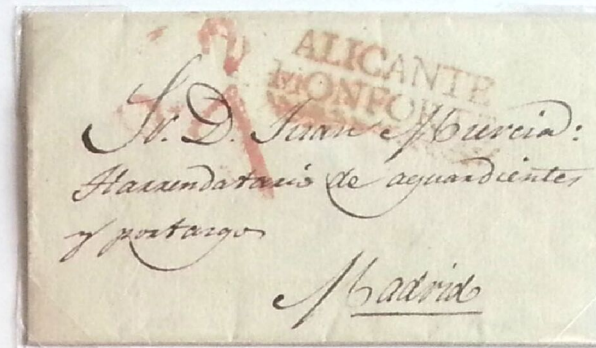 ALICANTE
MONFORTE
Sr. D. Juan Murcia:
Harrendatario de aguardientes
y portazgo
Madrid